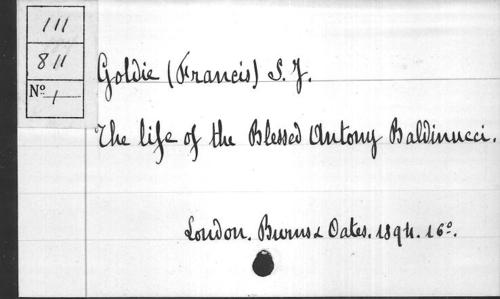 111
811
Nº 1
Goldie (Francis) S. J.
The life of the Blessed Antony Baldinucci.
London. Burns & Oates. 1894. 16º.